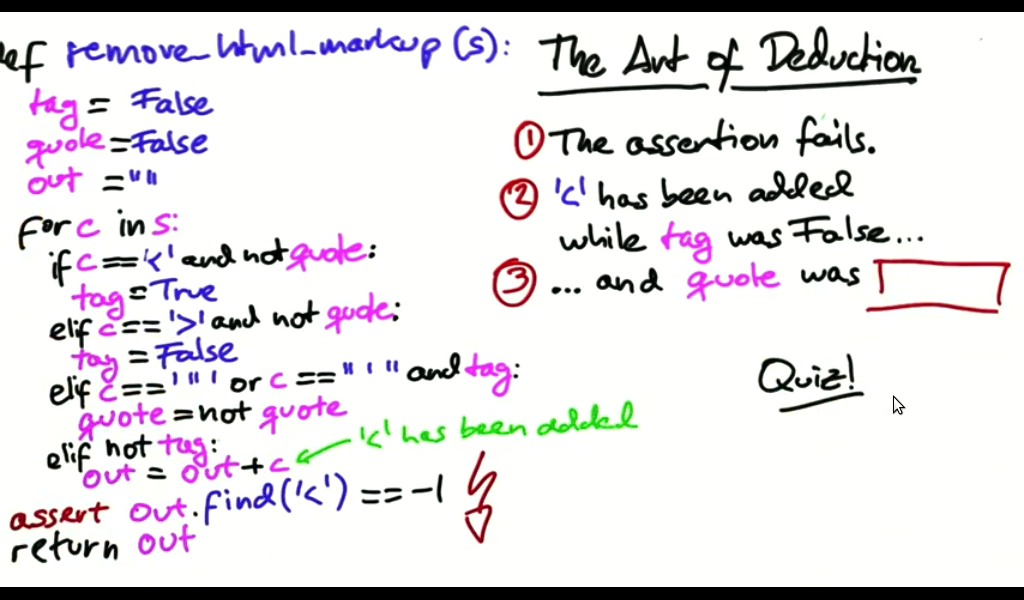 def remove_html_markup (s):
tag = False
quote = False
out = ""
for c in s:
if c == '<' and not quote:
tag = True
elif c == '>' and not quote:
tag = False
elif c == '"' or c == "'" and tag:
quote = not quote
elif not tag:
out = out + c
'<' has been added
assert out.find('<') == -1
return out
The Art of Deduction
① The assertion fails.
② '<' has been added
while tag was False...
③ ... and quote was
Quiz!